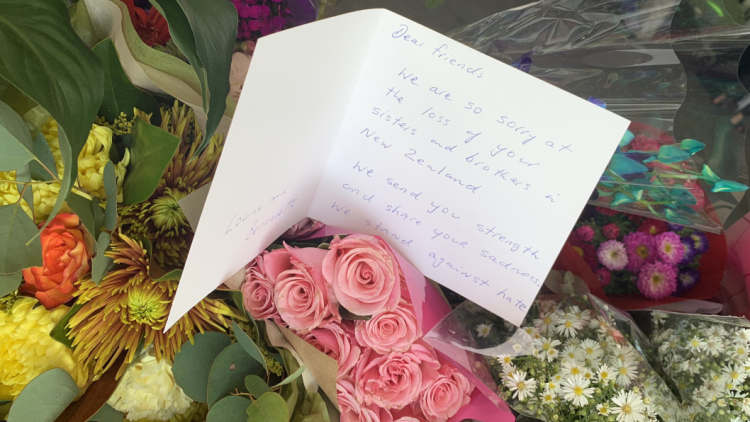 Dear friends
We are so sorry at
the loss of your
sisters and brothers in
New Zealand
We send you strength
and share your sadness
We stand against hate